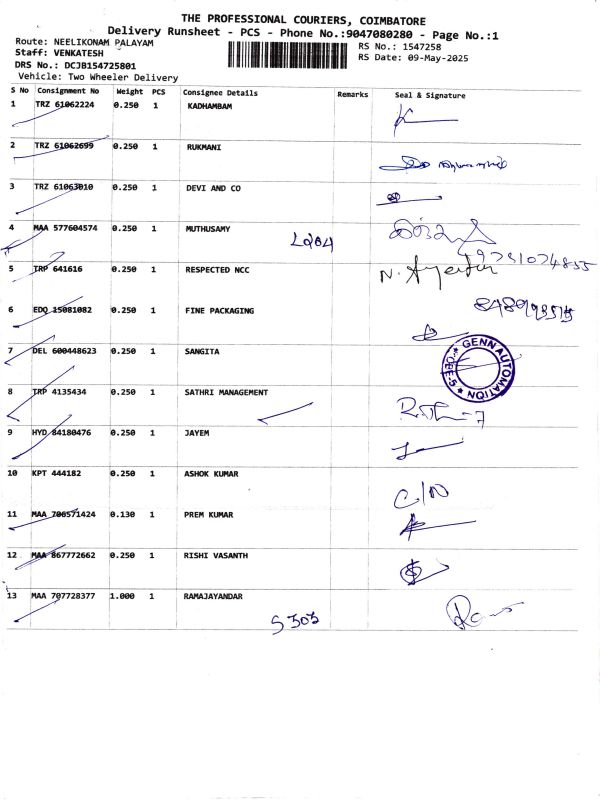 THE PROFESSIONAL COURIERS, COIMBATORE
Delivery Runsheet - PCS - Phone No.:9047080280 - Page No.:1
Route: NEELIKONAM PALAYAM
RS No.: 1547258
Staff: VENKATESH
RS Date: 09-May-2025
DRS No.: DCJB154725801
Vehicle: Two Wheeler Delivery
S No Consignment No Weight PCS Consignee Details Remarks Seal & Signature
1 TRZ 61062224 0.250 1 KADHAMBAM
2 TRZ 61062699 0.250 1 RUKMANI
3 TRZ 61063010 0.250 1 DEVI AND CO
4 MAA 577604574 0.250 1 MUTHUSAMY
L204
5 TRP 641616 0.250 1 RESPECTED NCC
6 EDQ 15081082 0.250 1 FINE PACKAGING
7 DEL 600448623 0.250 1 SANGITA
GENN AUTOMATION
CBE-5
8 TRP 4135434 0.250 1 SATHRI MANAGEMENT
9 HYD 84180476 0.250 1 JAYEM
10 KPT 444182 0.250 1 ASHOK KUMAR
C/N
11 MAA 706571424 0.130 1 PREM KUMAR
12 MAA 867772662 0.250 1 RISHI VASANTH
13 MAA 707728377 1.000 1 RAMAJAYANDAR
S 303